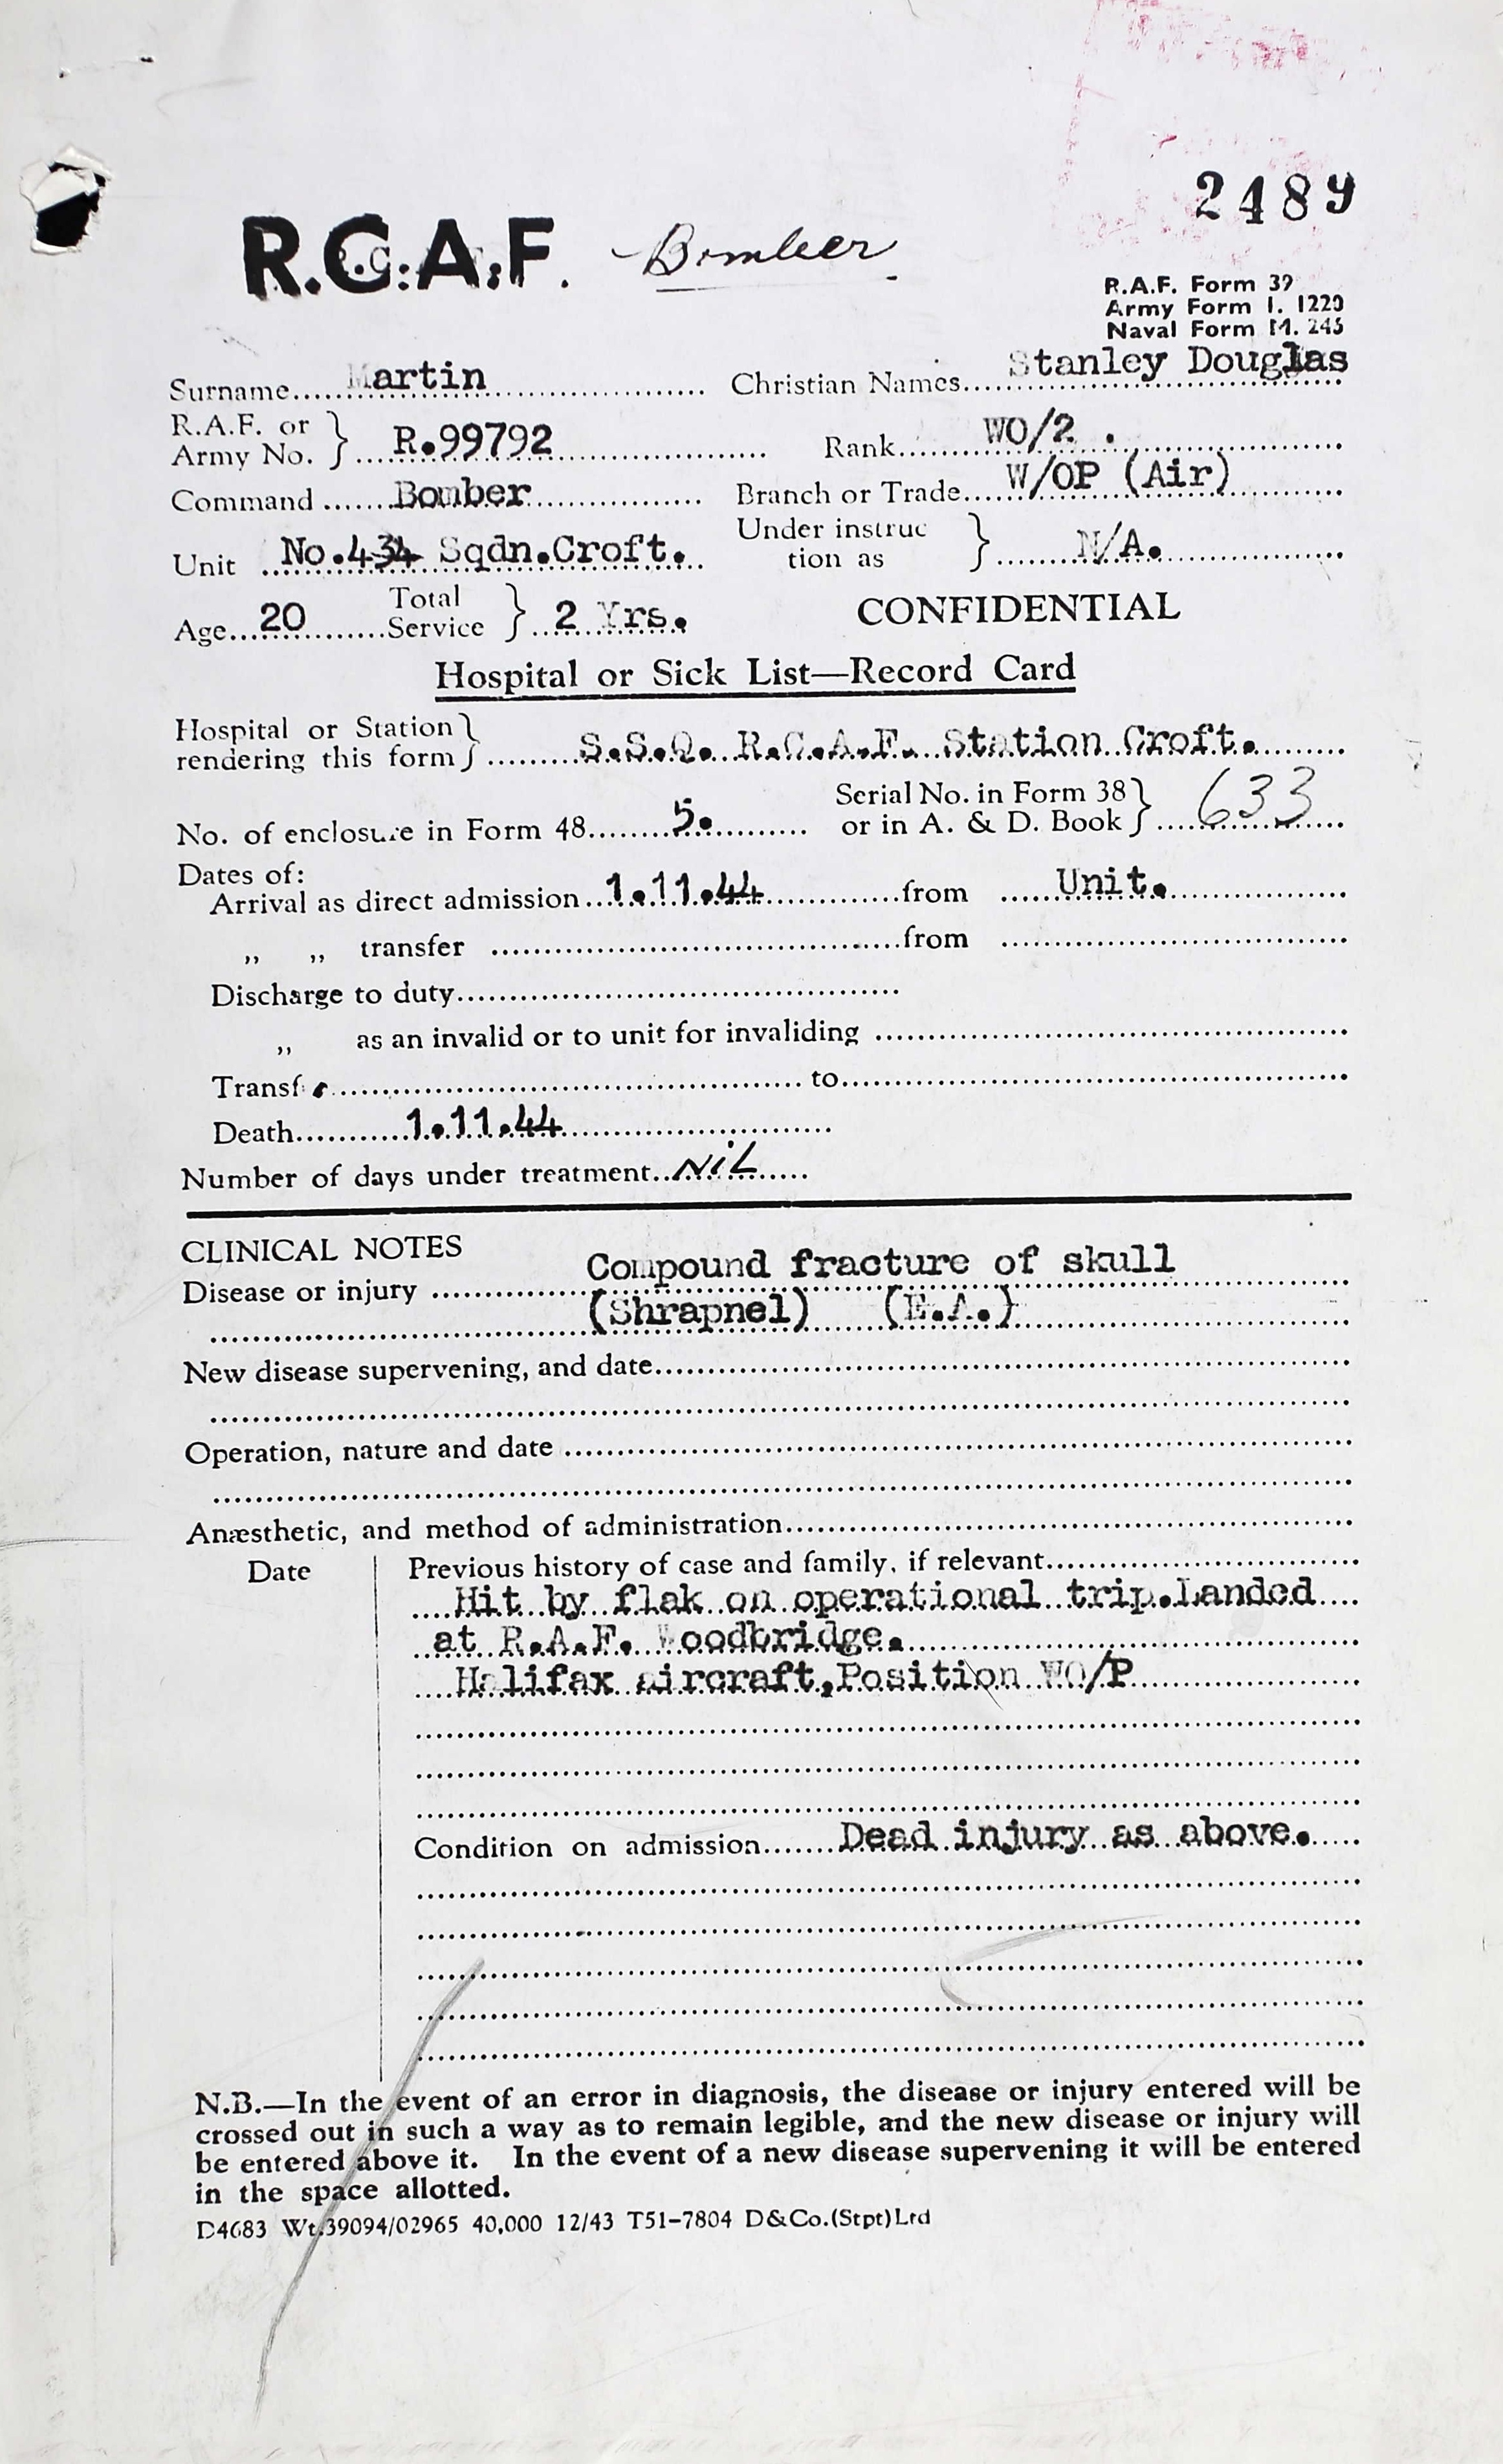 2489
R.C.A.F. Bomber
R.A.F. Form 39
Army Form I. 1220
Naval Form M. 245
Surname Martin Christian Names Stanley Douglas
R.A.F. or Army No. } R.99792 Rank WO/2 .
Command Bomber Branch or Trade W/OP (Air)
Unit No.434 Sqdn.Croft. Under instruc tion as } N/A.
Age 20 Total Service } 2 Yrs. CONFIDENTIAL
Hospital or Sick List—Record Card
Hospital or Station rendering this form } S.S.Q. R.C.A.F. Station Croft.
No. of enclosure in Form 48 5. Serial No. in Form 38 or in A. & D. Book } 633
Dates of:
Arrival as direct admission 1.11.44 from Unit.
„ „ transfer from
Discharge to duty
„ as an invalid or to unit for invaliding
Transfer to
Death 1.11.44
Number of days under treatment NiL
CLINICAL NOTES
Disease or injury Compound fracture of skull
(Shrapnel) (E.A.)
New disease supervening, and date
Operation, nature and date
Anæsthetic, and method of administration
Date Previous history of case and family, if relevant
Hit by flak on operational trip.Landed
at R.A.F. Woodbridge.
Halifax aircraft,Position WO/P
Condition on admission Dead injury as above.
N.B.—In the event of an error in diagnosis, the disease or injury entered will be
crossed out in such a way as to remain legible, and the new disease or injury will
be entered above it. In the event of a new disease supervening it will be entered
in the space allotted.
D4683 Wt.39094/02965 40,000 12/43 T51–7804 D&Co.(Stpt)Ltd